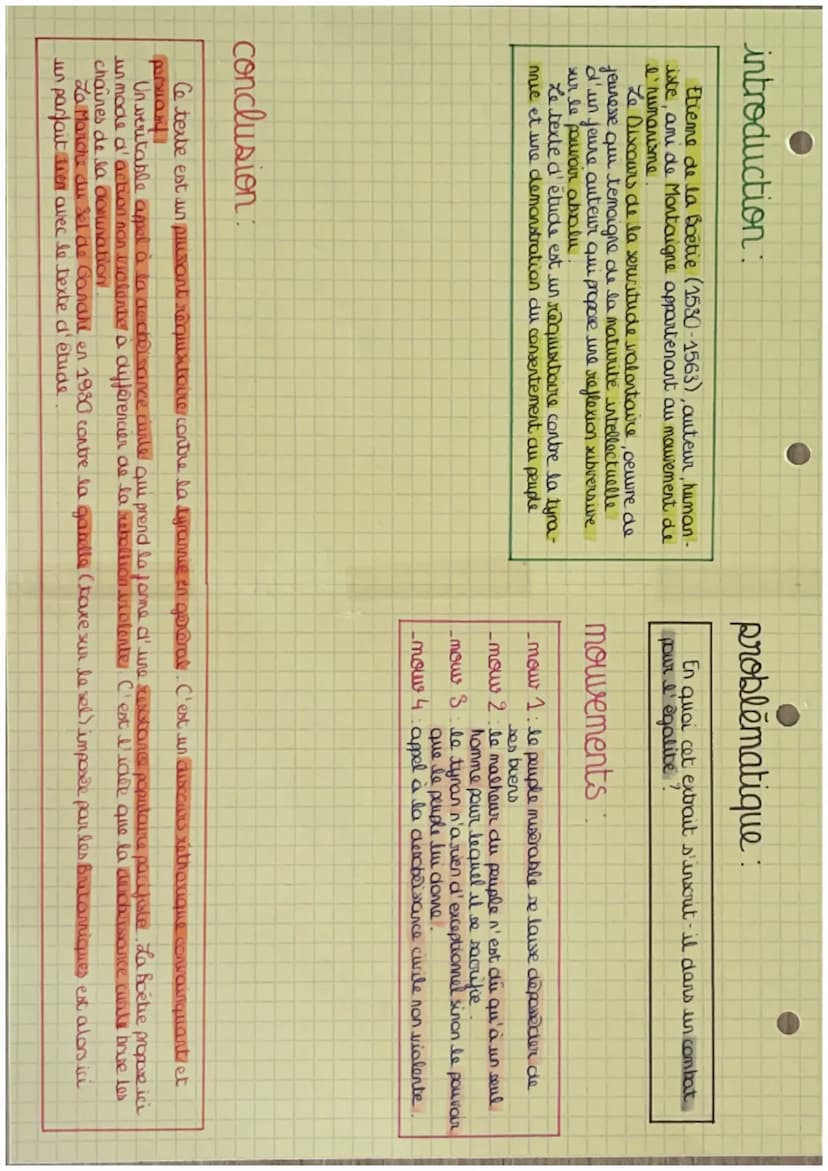 introduction :
Etienne de la Boëtie (1530-1563), auteur, human-
iste, ami de Montaigne appartenant au mouvement de
l'humanisme.
Le Discours de la servitude volontaire, oeuvre de
jeunesse qui temoigne de la maturité intellectuelle
d'un jeune auteur qui propose une reflexion subversive
sur le pouvoir absolu.
Le texte d'étude est un réquisitoire contre la tyra-
nnie et une demonstration du consentement du peuple
problématique :
En quoi cet extrait s'inscrit-il dans un combat
pour l'égalité ?
mouvements :
- mouv 1 : le peuple misérable se laisse déposséder de
ses biens
- mouv 2 : le malheur du peuple n'est dû qu'à un seul
homme pour lequel il se sacrifie.
- mouv 3 : le tyran n'a rien d'exceptionnel sinon le pouvoir
que le peuple lui donne.
- mouv 4 : appel à la desobéissance civile non violente.
conclusion :
Ce texte est un puissant réquisitoire contre la tyrannie en général. C'est un discours réthorique convainquant et
persuasif
Un véritable appel à la desobéissance civile qui prend la forme d'une résistance populaire pacifiste. La Boétie propose ici
un mode d'action non violente à différencier de la rebellion violente. C'est l'idée que la desobeissance civile brise les
chaînes de la domination.
La Marche du Sel de Gandhi en 1930 contre la gabelle (taxe sur le sel) imposée par les Britanniques est alors ici
un parfait lien avec le texte d'étude.